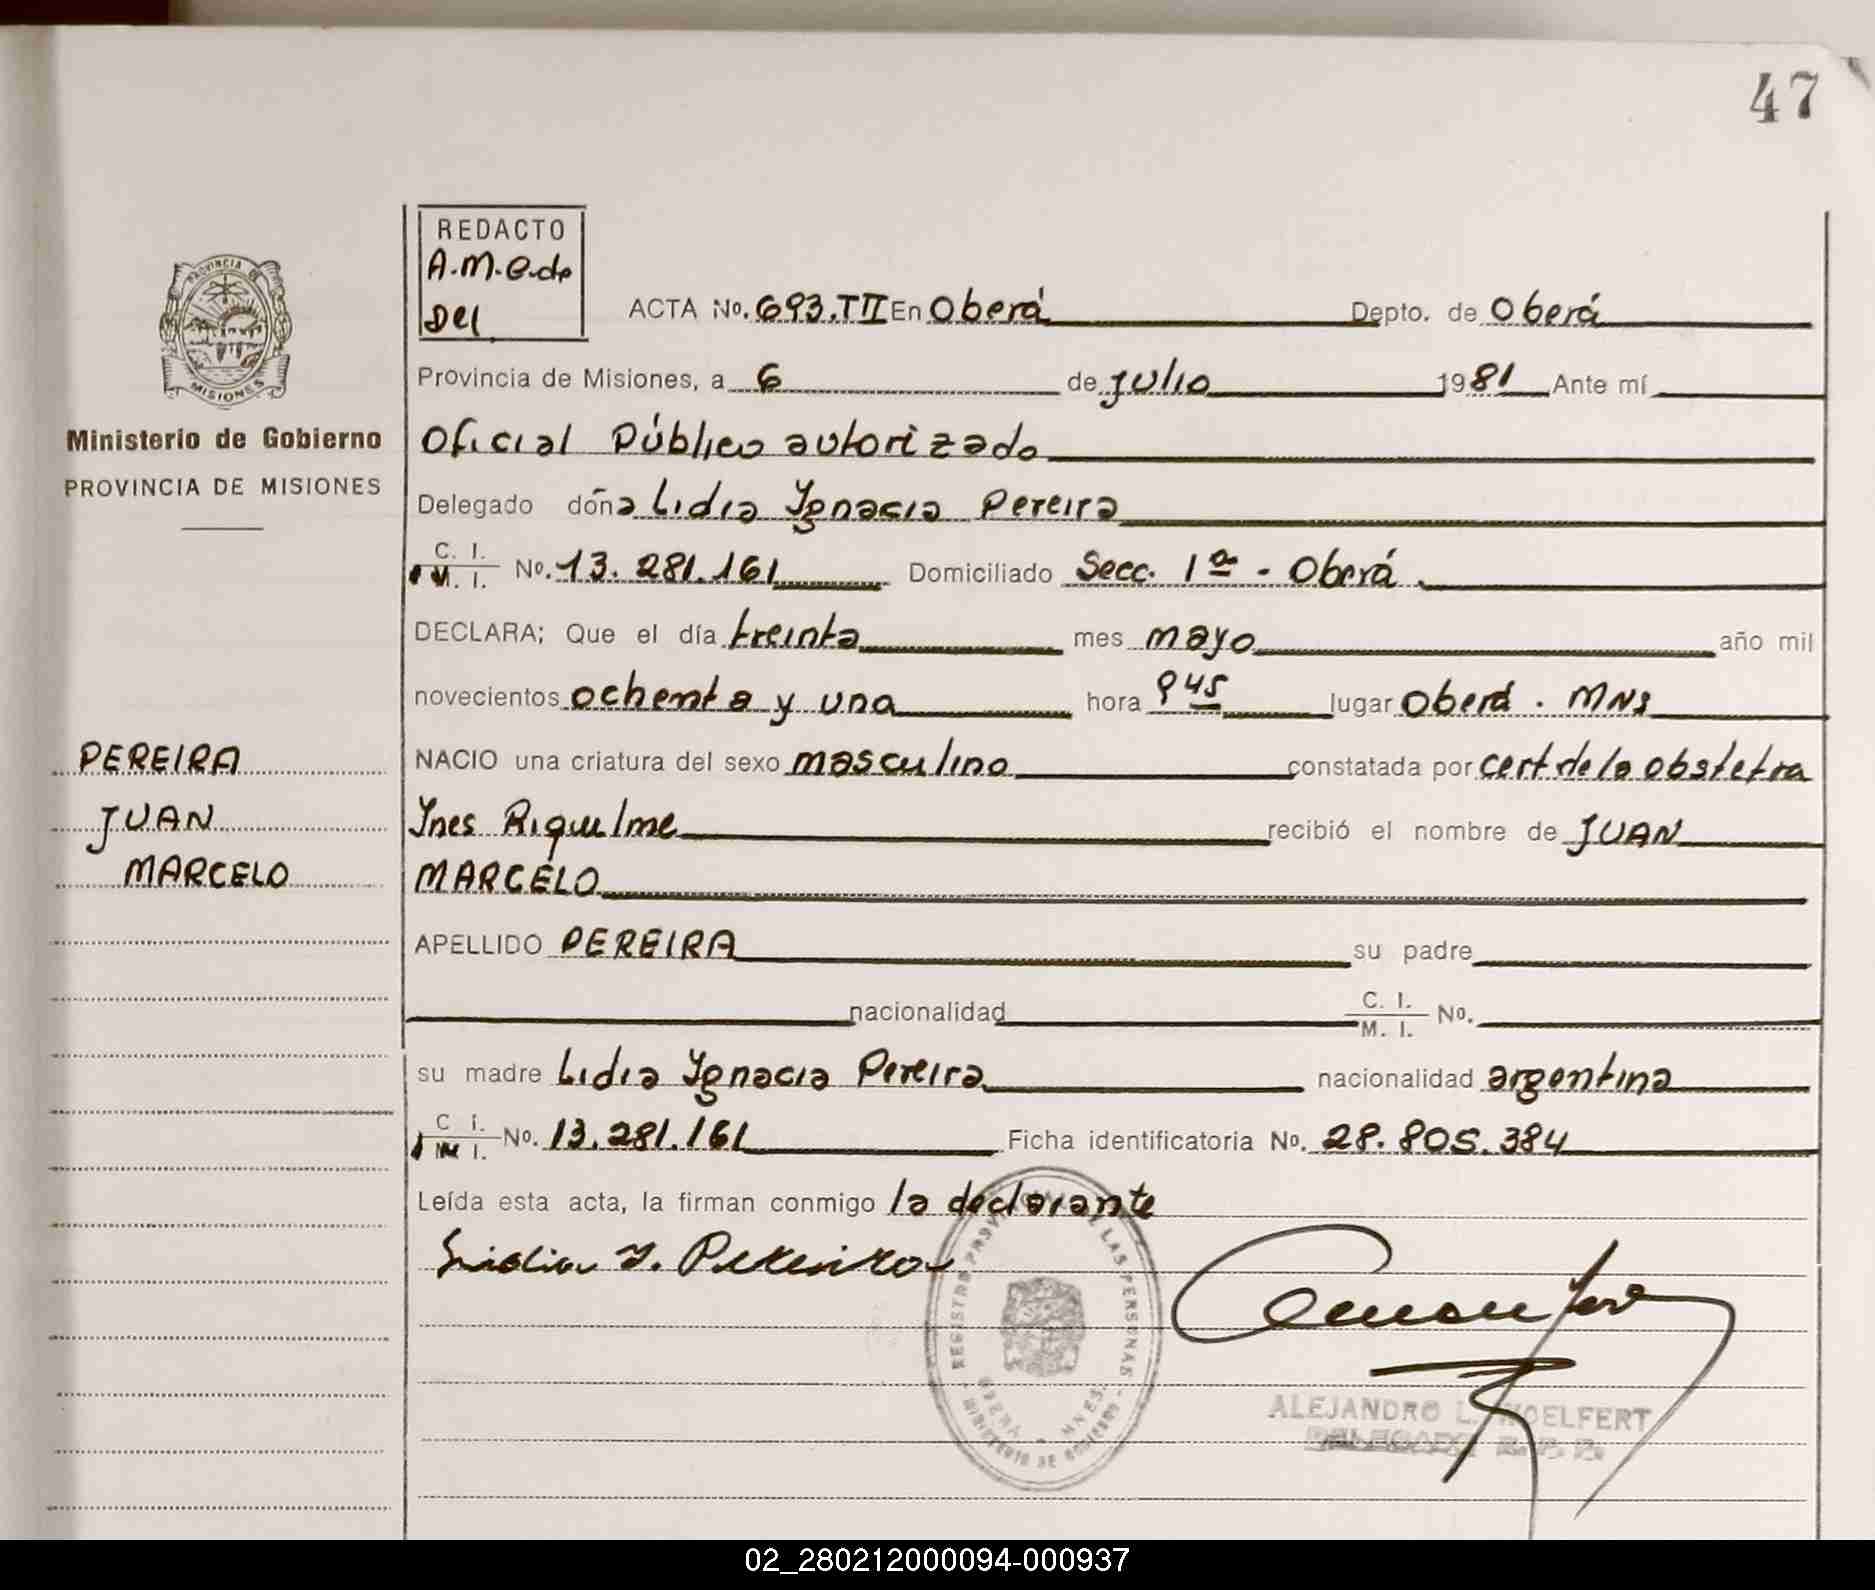 47
REDACTO
A.M.C.de
Del
ACTA No. 693.TII En Oberá Depto. de Oberá
PROVINCIA DE
MISIONES
Provincia de Misiones, a 6 de Julio 1981 Ante mí
Ministerio de Gobierno
Oficial Público autorizado
PROVINCIA DE MISIONES
Delegado doña Lidia Ygnacia Pereira
C. I.
M. I. No. 13.281.161 Domiciliado Secc. 1ª - Oberá
DECLARA; Que el día treinta mes mayo año mil
novecientos ochenta y uno hora 945 lugar Oberá . MNS
PEREIRA
NACIO una criatura del sexo masculino constatada por cert de la obstetra
JUAN
Ynes Riquelme recibió el nombre de JUAN
MARCELO
MARCELO
APELLIDO PEREIRA su padre
nacionalidad C. I.
M. I. No.
su madre Lidia Ygnacia Pereira nacionalidad argentina
C I.
M I. No. 13.281.161 Ficha identificatoria No. 28.805.384
Leída esta acta, la firman conmigo la declarante
Lidia Y. Pereira
REGISTRO PROV. LAS PERSONAS
OBERÁ - MNES.
MINISTERIO DE GOBIERNO
ALEJANDRO L. WOELFERT
DELEGADO
02_280212000094-000937